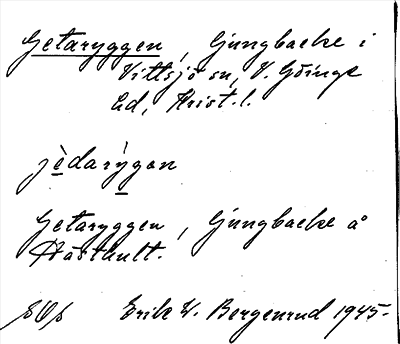 Getaryggen, ljungbacke i
Vittsjö sn, V. Göinge
hd, Krist. l.
jèdarỳgan
Getaryggen, ljungbacke å
Hästhult.
Erik W. Bergenrud 1945.